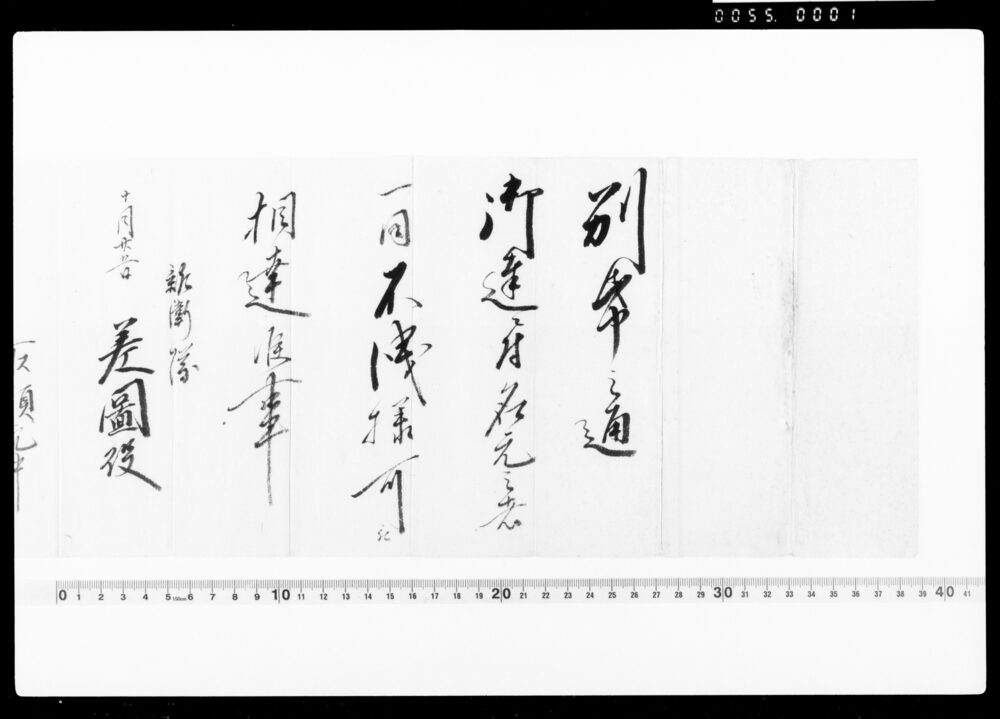 0055. 0001
別帋之通
御達ニ付名元之者
一同不洩様可
相達候事
新衛隊
十月廿日
差圖役
頭取中
0 1 2 3 4 5 150cm 6 7 8 9 10 11 12 13 14 15 16 17 18 19 20 21 22 23 24 25 26 27 28 29 30 31 32 33 34 35 36 37 38 39 40 41